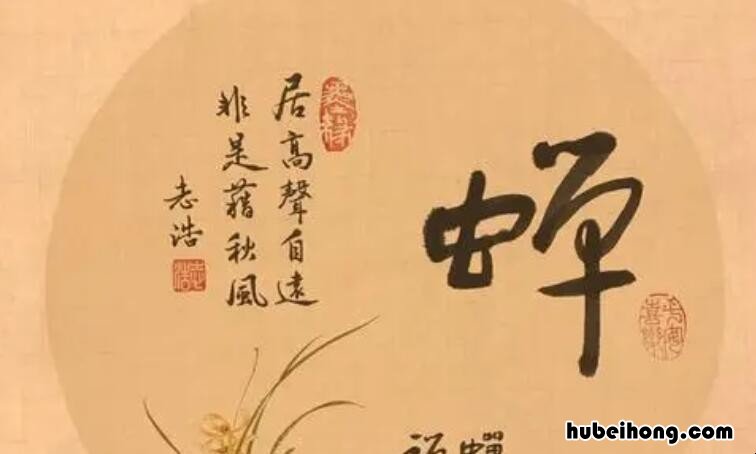 蝉
居高聲自遠
非是藉秋風
志浩
hubeihong.com